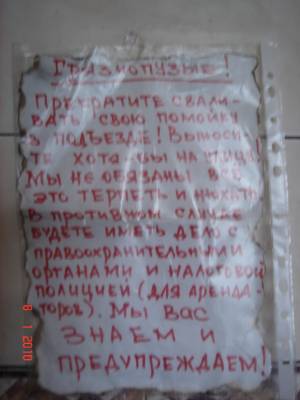 Грязнопузые!
Прекратите свали-
вать свою помойку
в подъезде! Выноси-
те хотя-бы на улицу!
Мы не обязаны всё
это терпеть и нюхать
В противном случае
будете иметь дело с
правоохранительными
органами и налоговой
полицией (для аренда-
торов). Мы вас
знаем и
предупреждаем!
8 1 2010